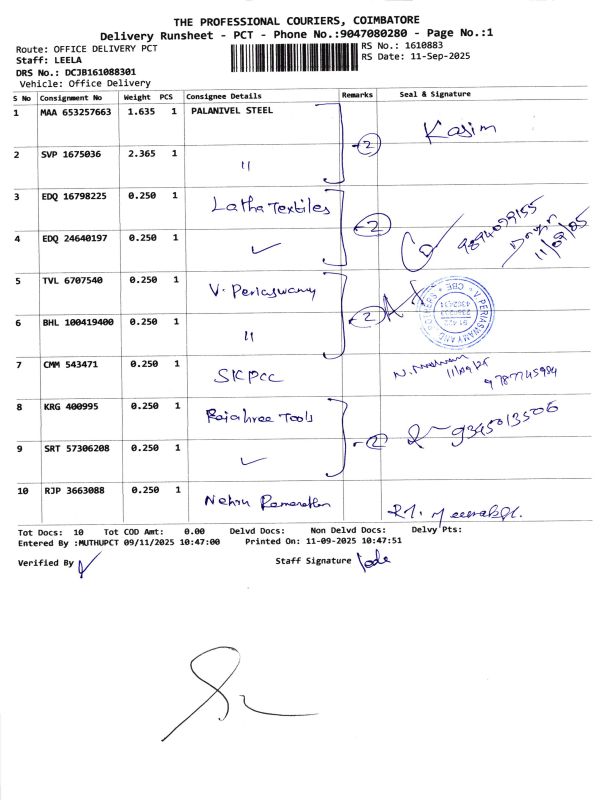 THE PROFESSIONAL COURIERS, COIMBATORE
Delivery Runsheet - PCT - Phone No.:9047080280 - Page No.:1
Route: OFFICE DELIVERY PCT
RS No.: 1610883
Staff: LEELA
RS Date: 11-Sep-2025
DRS No.: DCJB161088301
Vehicle: Office Delivery
S No Consignment No Weight PCS Consignee Details Remarks Seal & Signature
1 MAA 653257663 1.635 1 PALANIVEL STEEL Kasim
2 SVP 1675036 2.365 1 〃 2
3 EDQ 16798225 0.250 1 Latha Textiles 2 9894099155
4 EDQ 24640197 0.250 1 ✓ 11/09/05
5 TVL 6707540 0.250 1 V. Periaswamy 2
6 BHL 100419400 0.250 1 〃
7 CMM 543471 0.250 1 SKPCC 11/09/25 9787745984
8 KRG 400995 0.250 1 Rajahree Tools 2 9345013506
9 SRT 57306208 0.250 1 ✓
10 RJP 3663088 0.250 1 Nehru
Tot Docs: 10 Tot COD Amt: 0.00 Delvd Docs: Non Delvd Docs: Delvy Pts:
Entered By :MUTHUPCT 09/11/2025 10:47:00 Printed On: 11-09-2025 10:47:51
Verified By Staff Signature